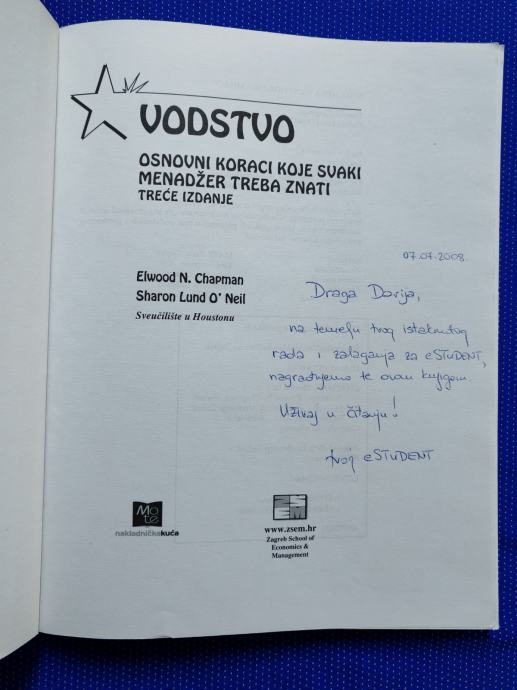 VODSTVO
OSNOVNI KORACI KOJE SVAKI
MENADŽER TREBA ZNATI
TREĆE IZDANJE
07.07.2008.
Elwood N. Chapman
Sharon Lund O' Neil
Sveučilište u Houstonu
Draga Darija,
na temelju tvog istaknutog
rada i zalaganja za eSTUDENT,
nagrađujemo te ovom knjigom.
Uživaj u čitanju!
tvoj eSTUDENT
Mo
te
nakladničkakuća
ZS
EM
www.zsem.hr
Zagreb School of
Economics &
Management